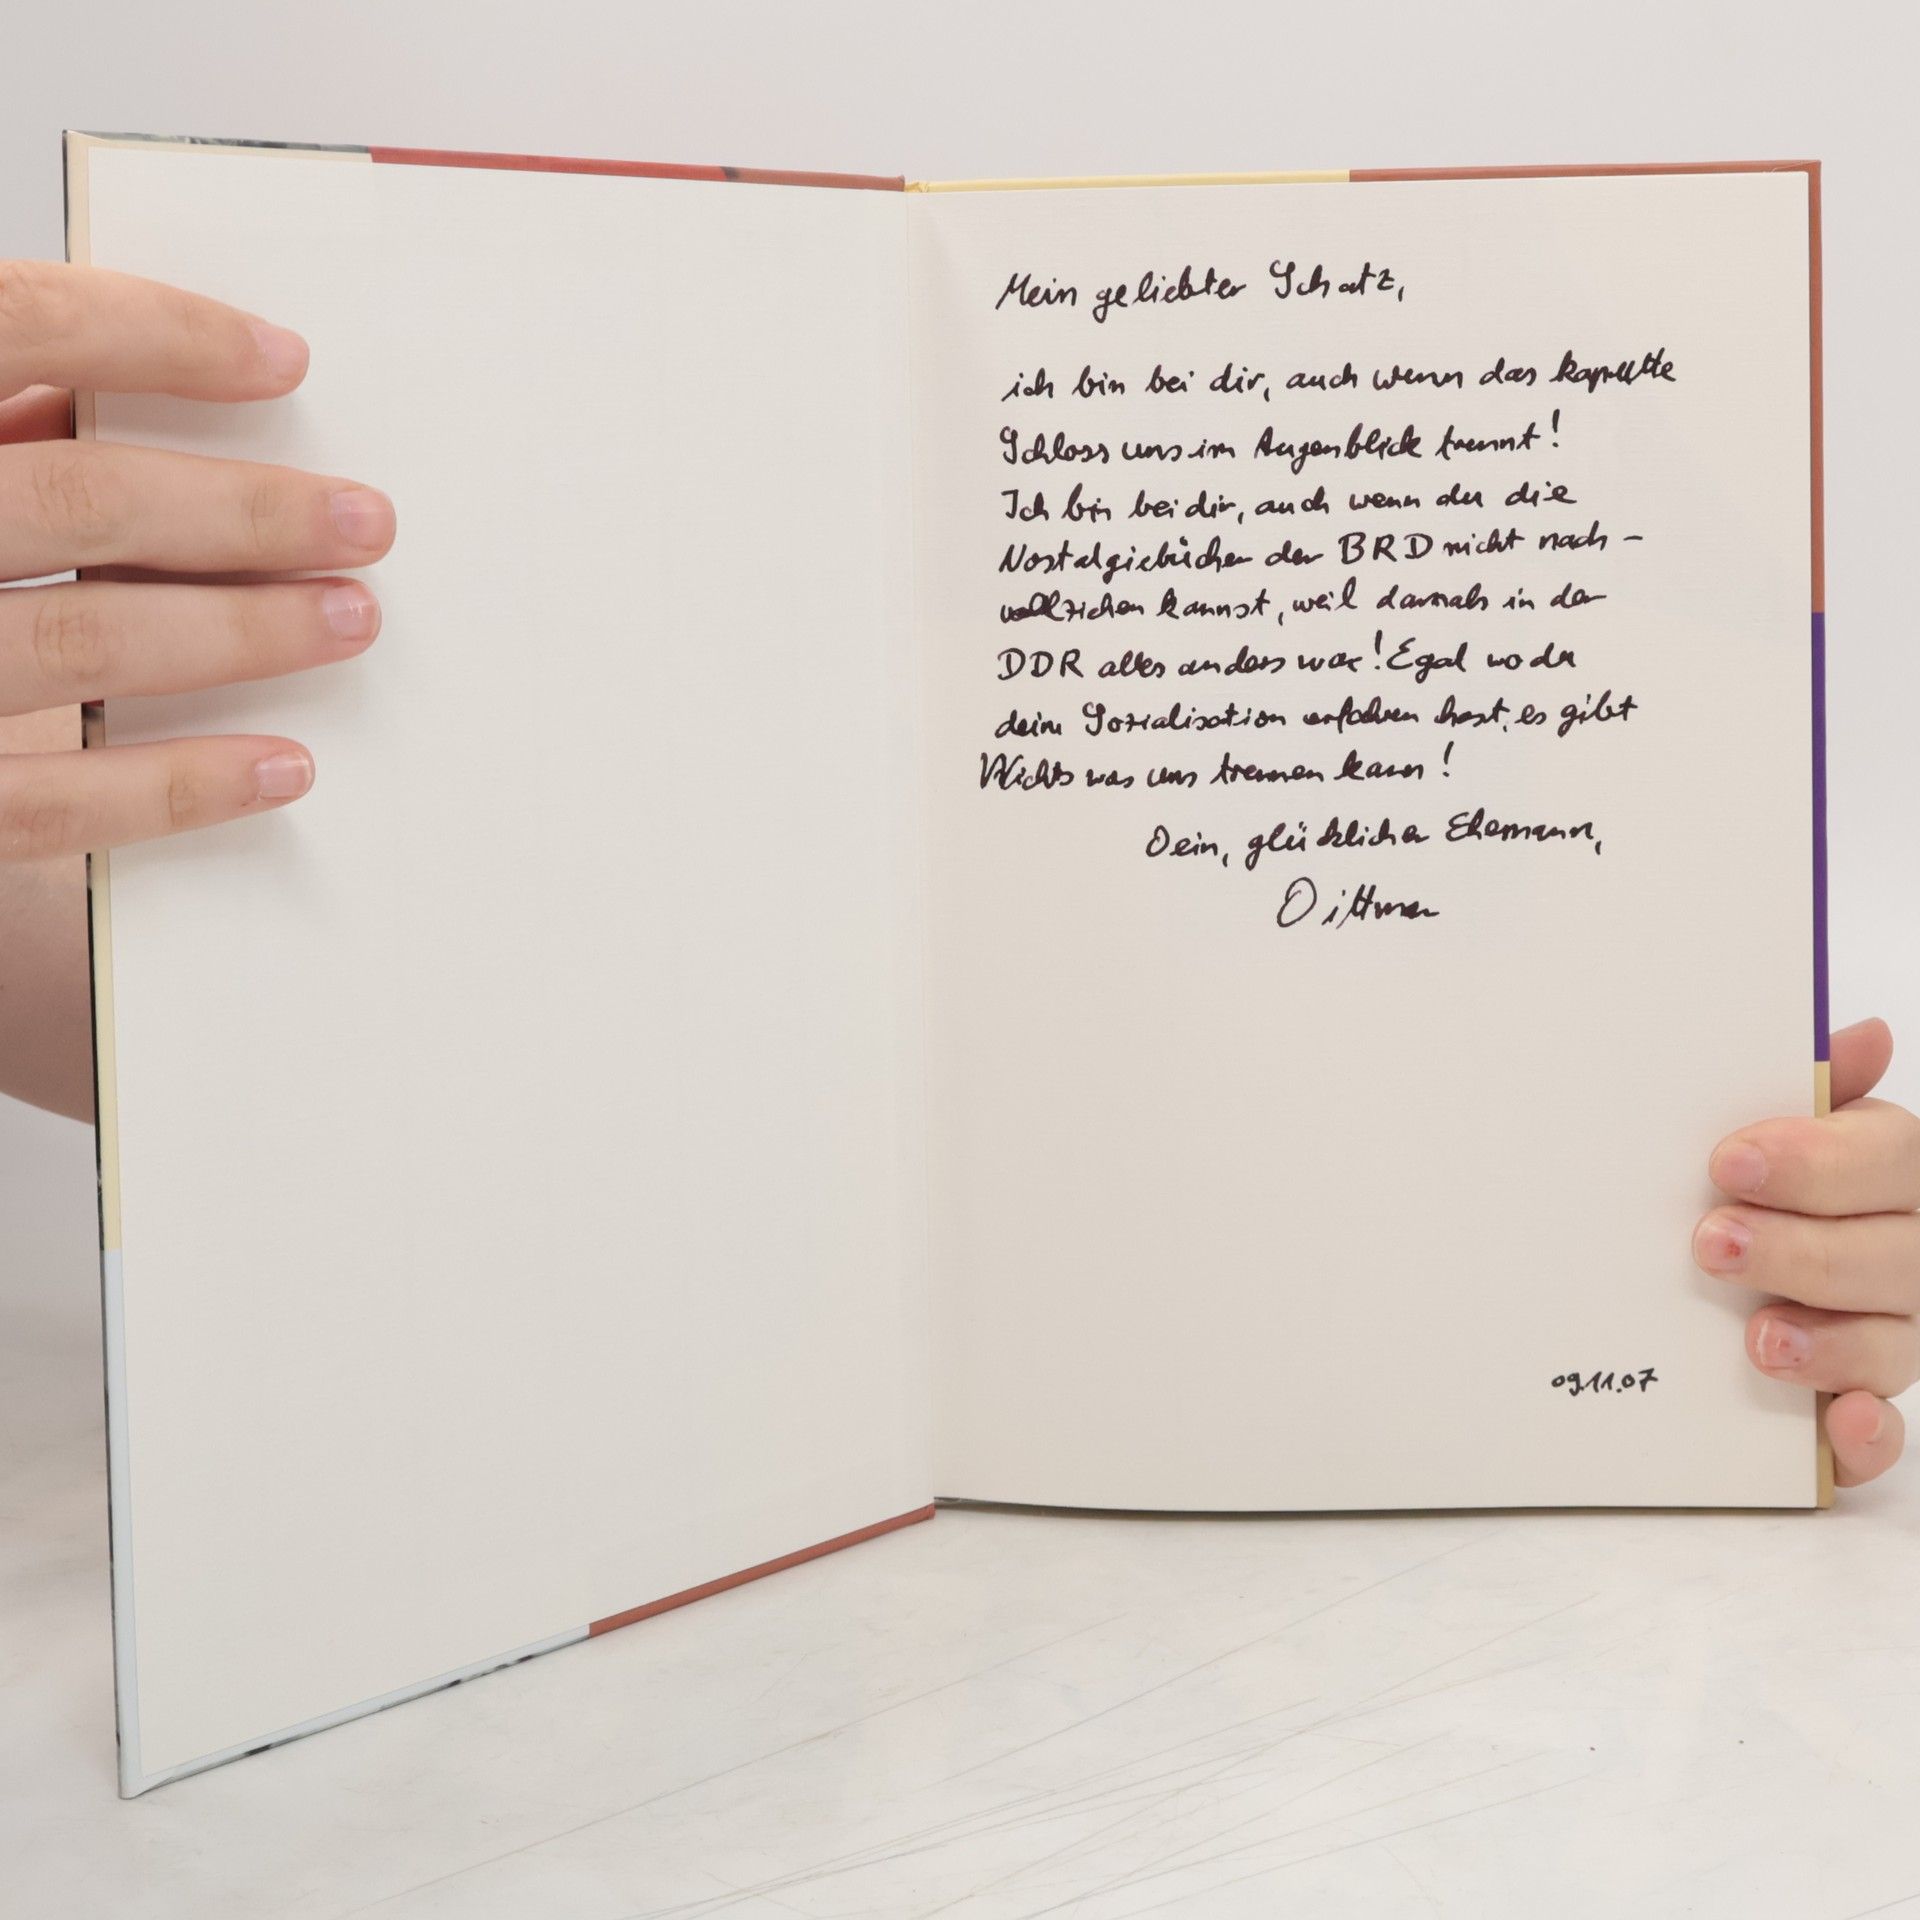 Mein geliebter Schatz,
ich bin bei dir, auch wenn das kaputte
Schloss uns im Augenblick trennt!
Ich bin bei dir, auch wenn du die
Nostalgiebücher der BRD nicht nach-
vollziehen kannst, weil damals in der
DDR alles anders war! Egal wo du
deine Sozialisation erfahren hast, es gibt
Nichts was uns trennen kann!
Dein, glücklicher Ehemann,
Dittmar
09.11.07